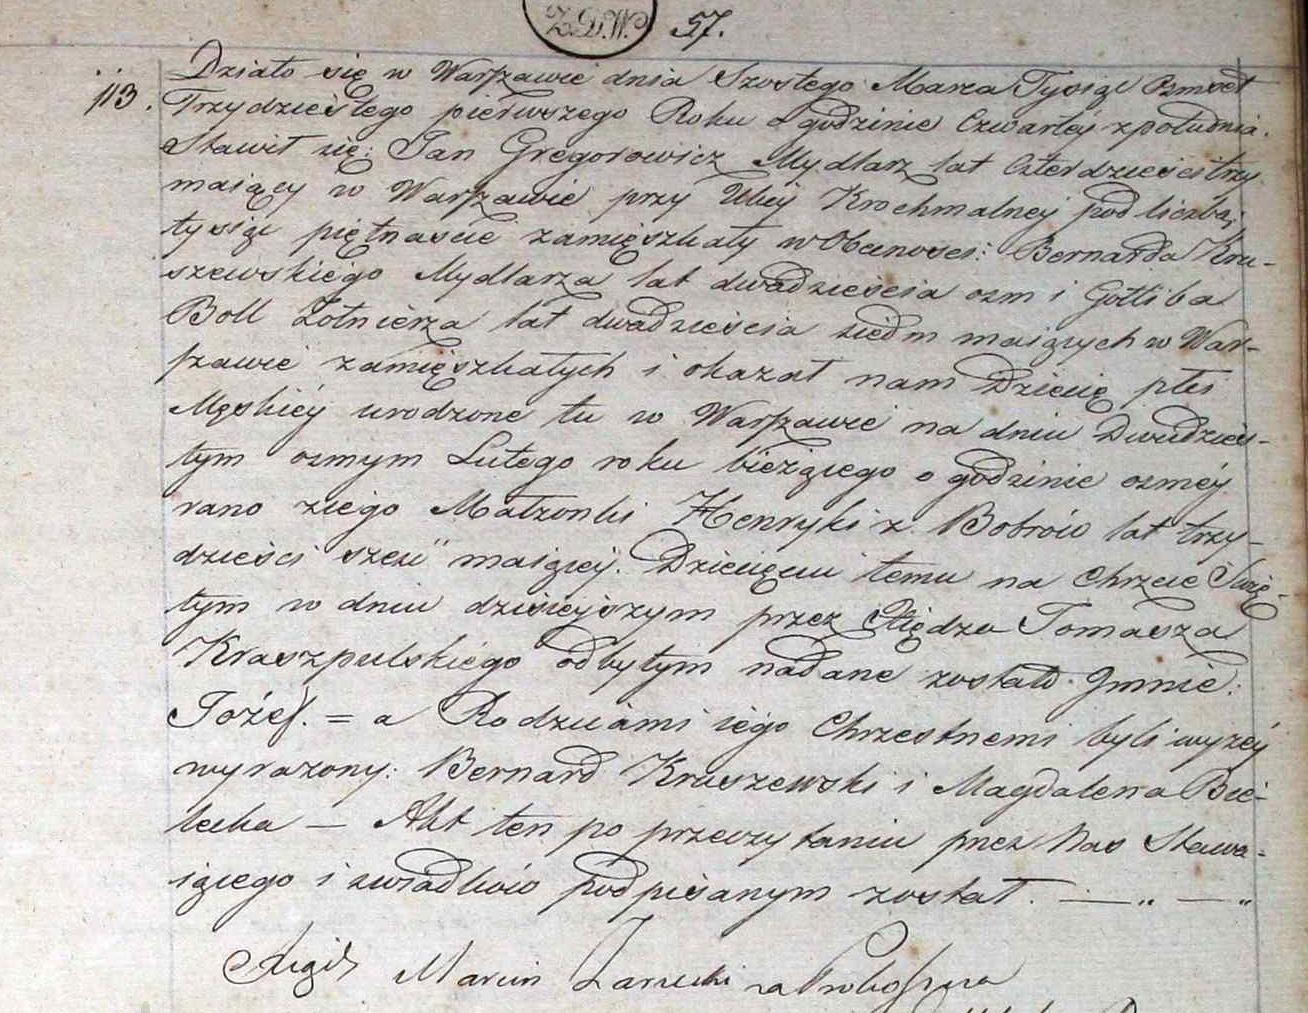 Z.D.W. 57.
113. Działo się w Warszawie dnia Szostego Marca Tysiąc Osmset
Trzydziestego pierwszego Roku o godzinie Czwartey z południa.
Stawił się: Jan Gregorowicz Mydlarz lat Czterdzieści trzy
maiący w Warszawie przy Ulicy Krochmalney pod liczbą
tysiąc piętnaście zamięszkały w Obecnosci: Bernarda Kru-
szewskiego Mydlarza lat dwadzieścia osm i Gotliba
Boll Żołnierza lat dwadzieścia siedm maiących w War-
szawie zamięszkałych i okazał nam Dziecię płci
Męskiéy urodzone tu w Warszawie na dniu Dwudzies-
tym osmym Lutego roku bieżącego o godzinie osméy
rano z iego Małżonki Henryki z Bobrów lat trzy-
dzieści szesć maiącey. Dziecięciu temu na Chrzcie Swię-
tym w dniu dzisieyszym przez Xiędza Tomasza
Kraszpulskiego odbytym nadane zostało Jmnie:
Józef. = a Rodzicami iego Chrzestnemi byli wyzéy
wyrazony: Bernard Kruszewski i Magdalena Bie-
lecka — Akt ten po przeczytaniu przez Nas Stawa-
iącego i swiadków podpisanym został. — „ — „
Xiądz Marcin Zarzecki za Proboszcza